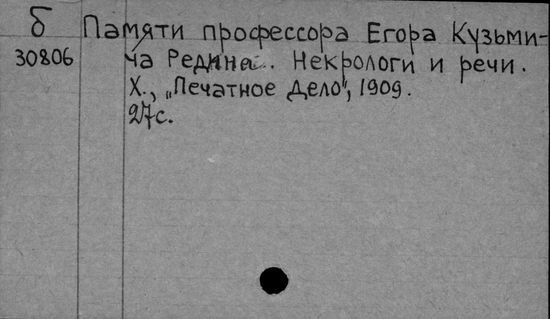 б Памяти профессора Егора Кузьми-
30806 ча Редина.. Некрологи и речи.
Х., „Печатное Дело", 1909.
27с.